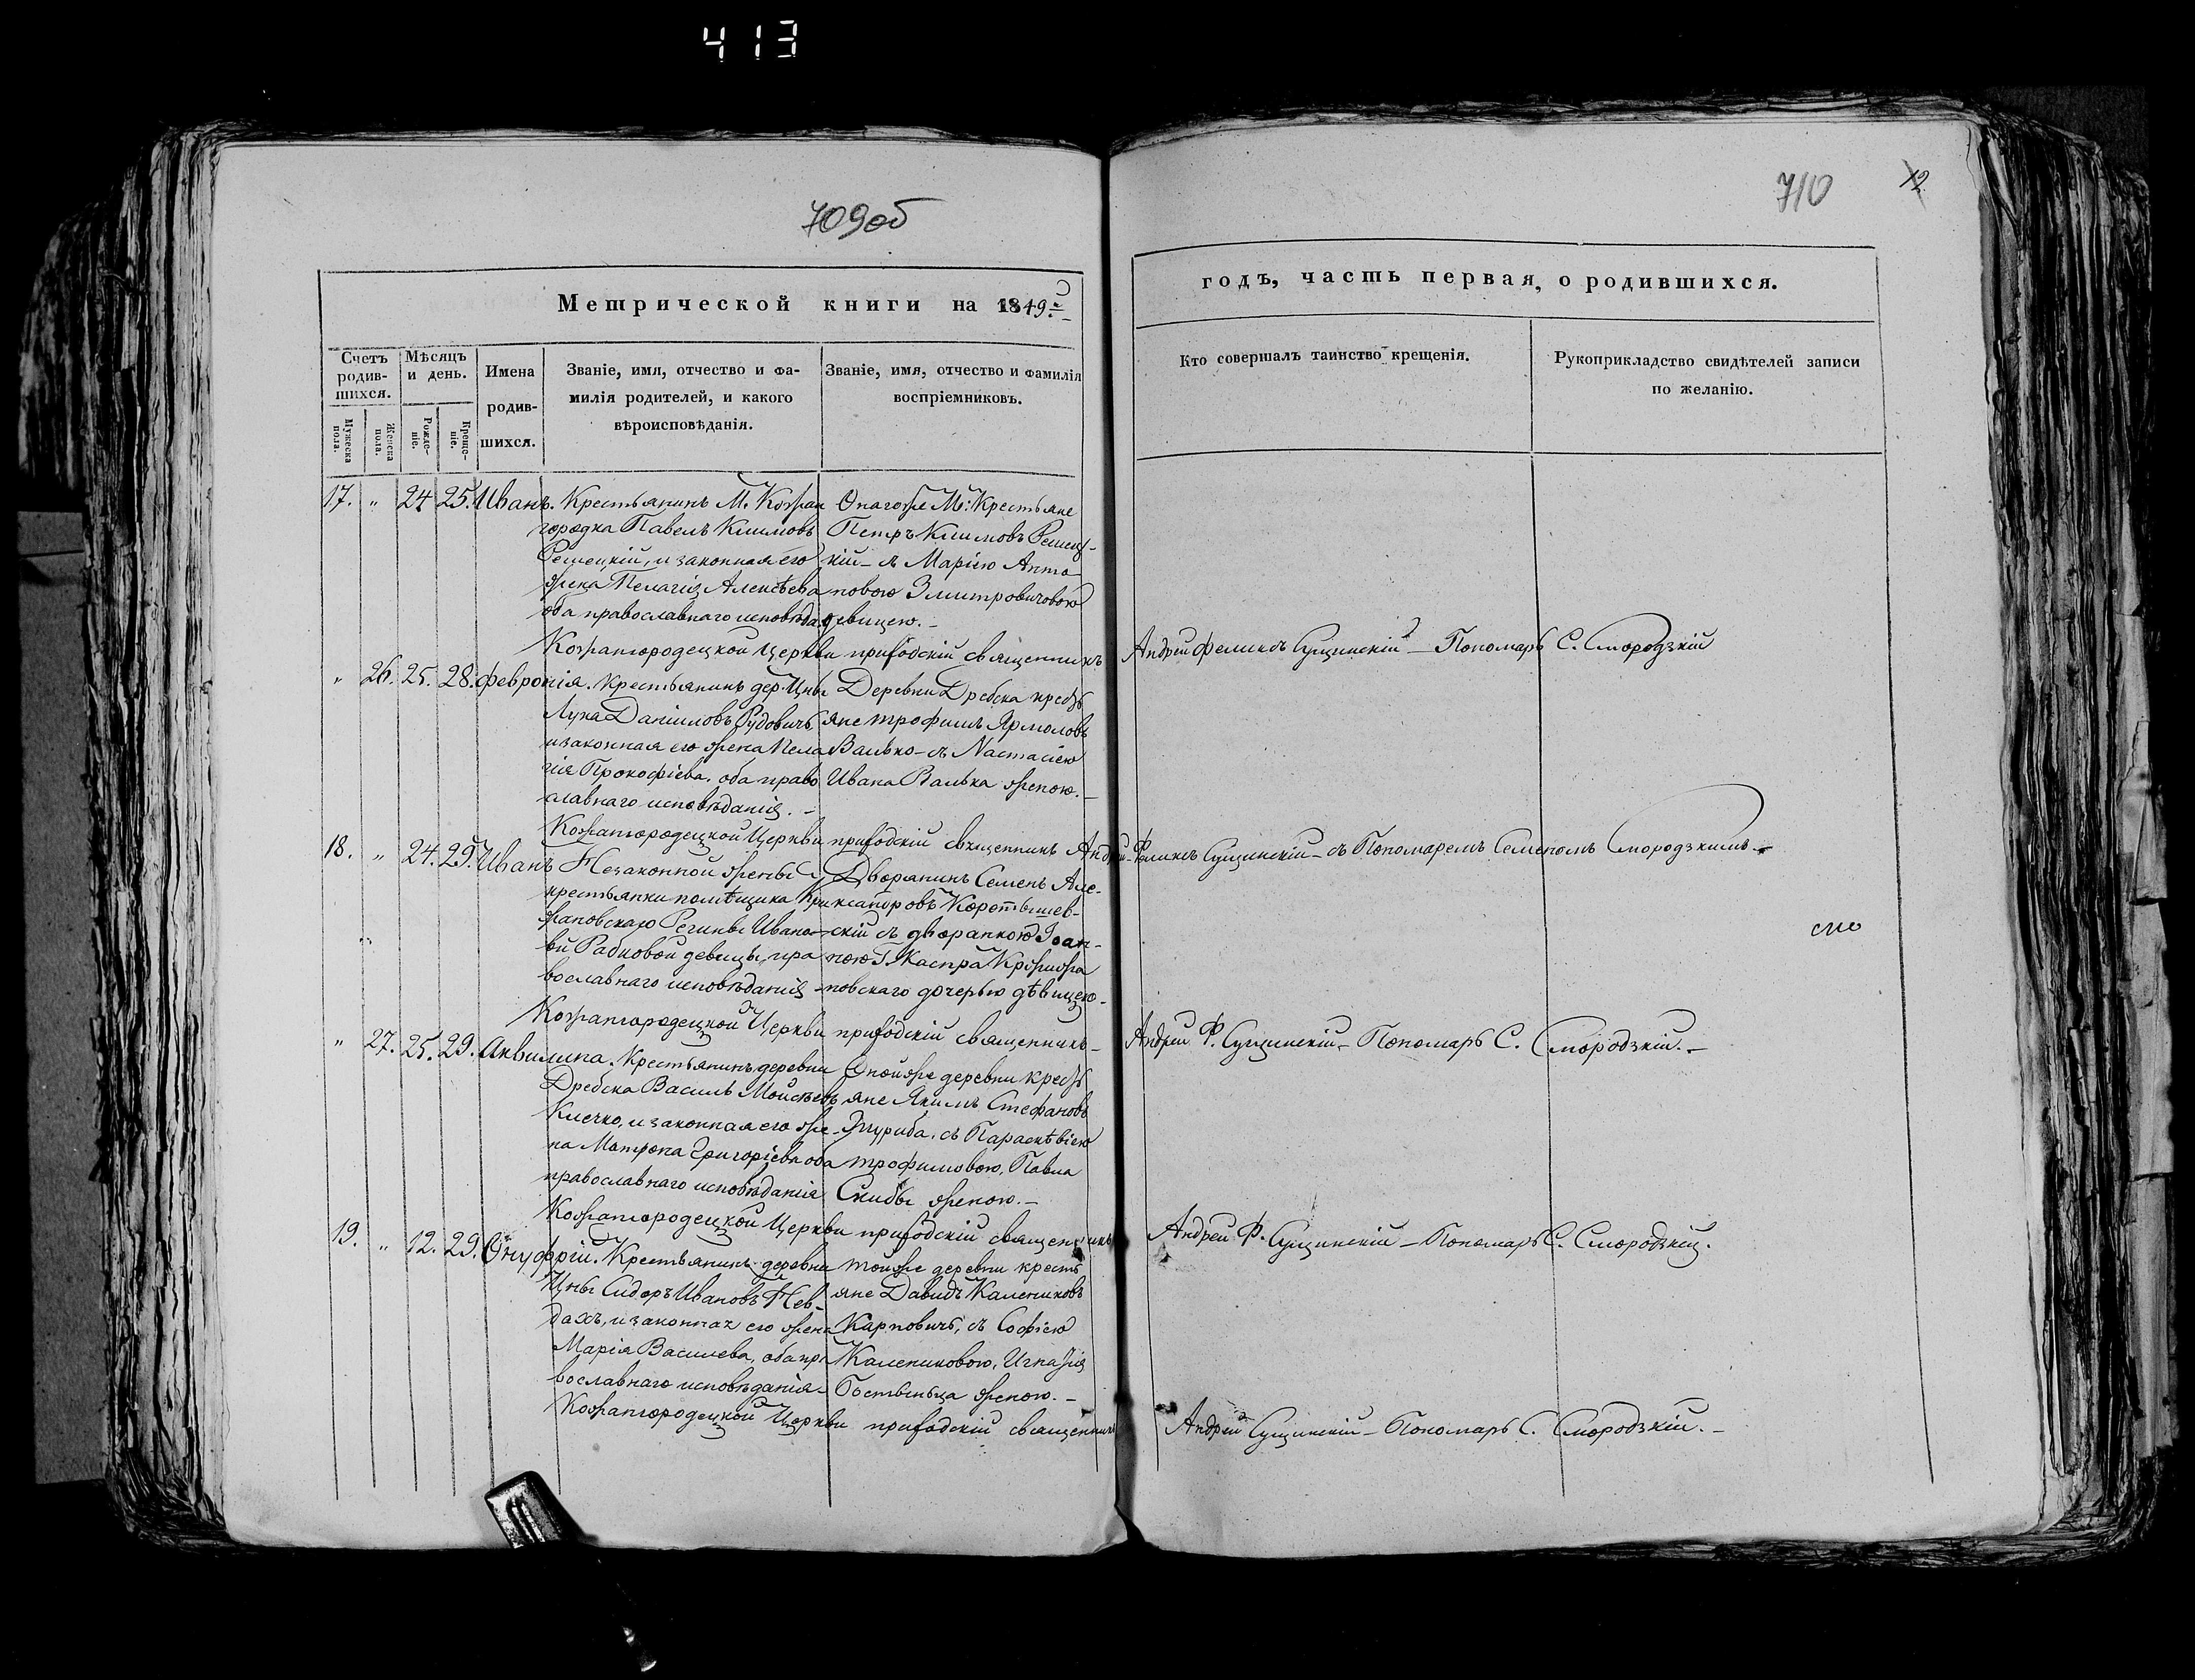 413
709об
710
12
Метрической книги на 1849й
годъ, часть первая, о родившихся.
Счетъ родив-шихся.
Мужеска пола.
Женска пола.
Мѣсяцъ и день.
Рожде-ніе.
Креще-ніе.
Имена родив-шихся.
Званіе, имя, отчество и фа-
милія родителей, и какого
вѣроисповѣданія.
Званіе, имя, отчество и фамилія
воспріемниковъ.
Кто совершалъ таинство крещенія.
Рукоприкладство свидѣтелей записи
по желанію.
17. " 24 25. Иванъ. Крестьянинъ М. Кожан
городка Павелъ Климовъ
Решецкій, и законная его
жена Пелагія Алексѣева
оба православнаго исповѣда.
Онагоже М: Крестьяне
Петръ Климовъ Решец-
кій - съ Маріею Анто
новою Змитровичовою
девицею. -
Кожангородецкой Церкви приходскій священникъ Андрей Феликсъ Сущинскій - Пономарь С. Смородзкій
" 26. 25. 28. Февронія. Крестьянинъ дер. Цны
Лука Даніиловъ Рудовичъ,
и законная его жена Пела
гія Прокофіева. оба право
славнаго исповѣданія. -
Деревни Дребска крест
яне Трофимъ Ярмоловъ
Валько - съ Настасіею
Ивана Валька женою. -
Кожангородецкой Церкви приходскій священникъ Андрей Феликсъ Сущинскій - съ Пономаремъ Семеномъ Смородзкимъ -
18. " 24. 29. Иванъ Незаконной жены
крестьянки помѣщика Кри
жановскаго Регины Ивано-
вй Рабковой девицы, пра
вославнаго исповѣданія -
Дворянинъ Семенъ Але-
ксандровъ Коротышев-
скій съ дворянкою Іоан-
ною Г. Каспра Крижжа
новскаго дочерью дѣвицею -
Кожангородецкой Церкви приходскій священникъ - Андрей Ф. Сущинскій - Пономарь С. Смородзкій. -
" 27. 25. 29. Аквилина. Крестьянинъ деревни
Дребска Василь Моисѣевъ
Клечко, и законная его же-
на Матрона Григоріева оба
православнаго исповѣданія
Онойже деревни крест
яне Якимъ Стефановъ
Згуриба. съ Параскѣвіею
Трофимовою, Павла
Скибы женою. -
Кожангородецкой Церкви приходскій священникъ Андрей Ф. Сущинскій - Пономарь С. Смородзкій.
19. " 12. 29. Онуфрій. Крестьянинъ деревни
Цны Сидоръ Ивановъ Нев-
дахъ, и законная его жена
Марія Василева, оба пра
вославнаго исповѣданія -
тойже деревни кресть
яне Давидъ Калениковъ
Карповичъ, съ Софіею
Калениковою, Игнатія
женою. -
Кожангородецкой Церкви приходскій священникъ Андрей Сущинскій - Пономарь С. Смородзкій. -